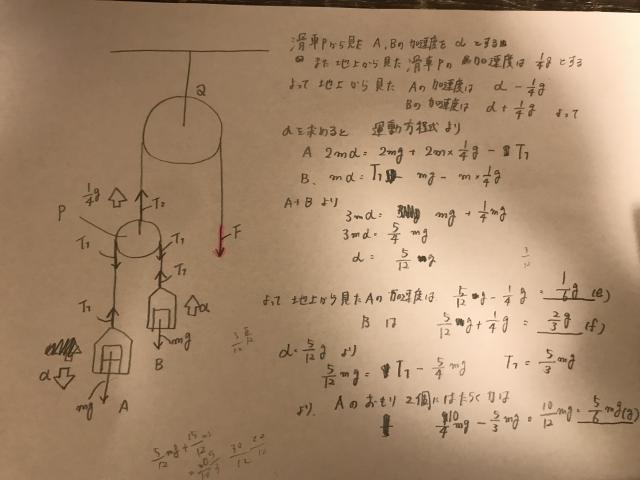 滑車Pから見た A,Bの加速度を αとする
また 地上から見た 滑車Pの 加速度は 1/4g とする
よって 地上から見た Aの加速度は α - 1/4g
Bの加速度は α + 1/4g よって
αを求めると 運動方程式より
A 2mα = 2mg + 2m×1/4g - T₁
B. mα = T₁ - mg - m×1/4g
A+B より
3mα = mg + 1/4mg
3mα = 5/4 mg
α = 5/12 g
よって 地上から見たAの加速度は 5/12 g - 1/4 g = 1/6 g (e)
B は 5/12 g + 1/4 g = 2/3 g (f)
α = 5/12 g より
5/12 mg = T₁ - 5/4 mg T₁ = 5/3 mg
より Aのおもり 2個にはたらく力は
10/4 mg - 5/3 mg = 10/12 mg = 5/6 mg (g)
Q
1/4g
P
T₂
F
T₁
T₁
T₁
T₁
α
mg
B
α
mg
A